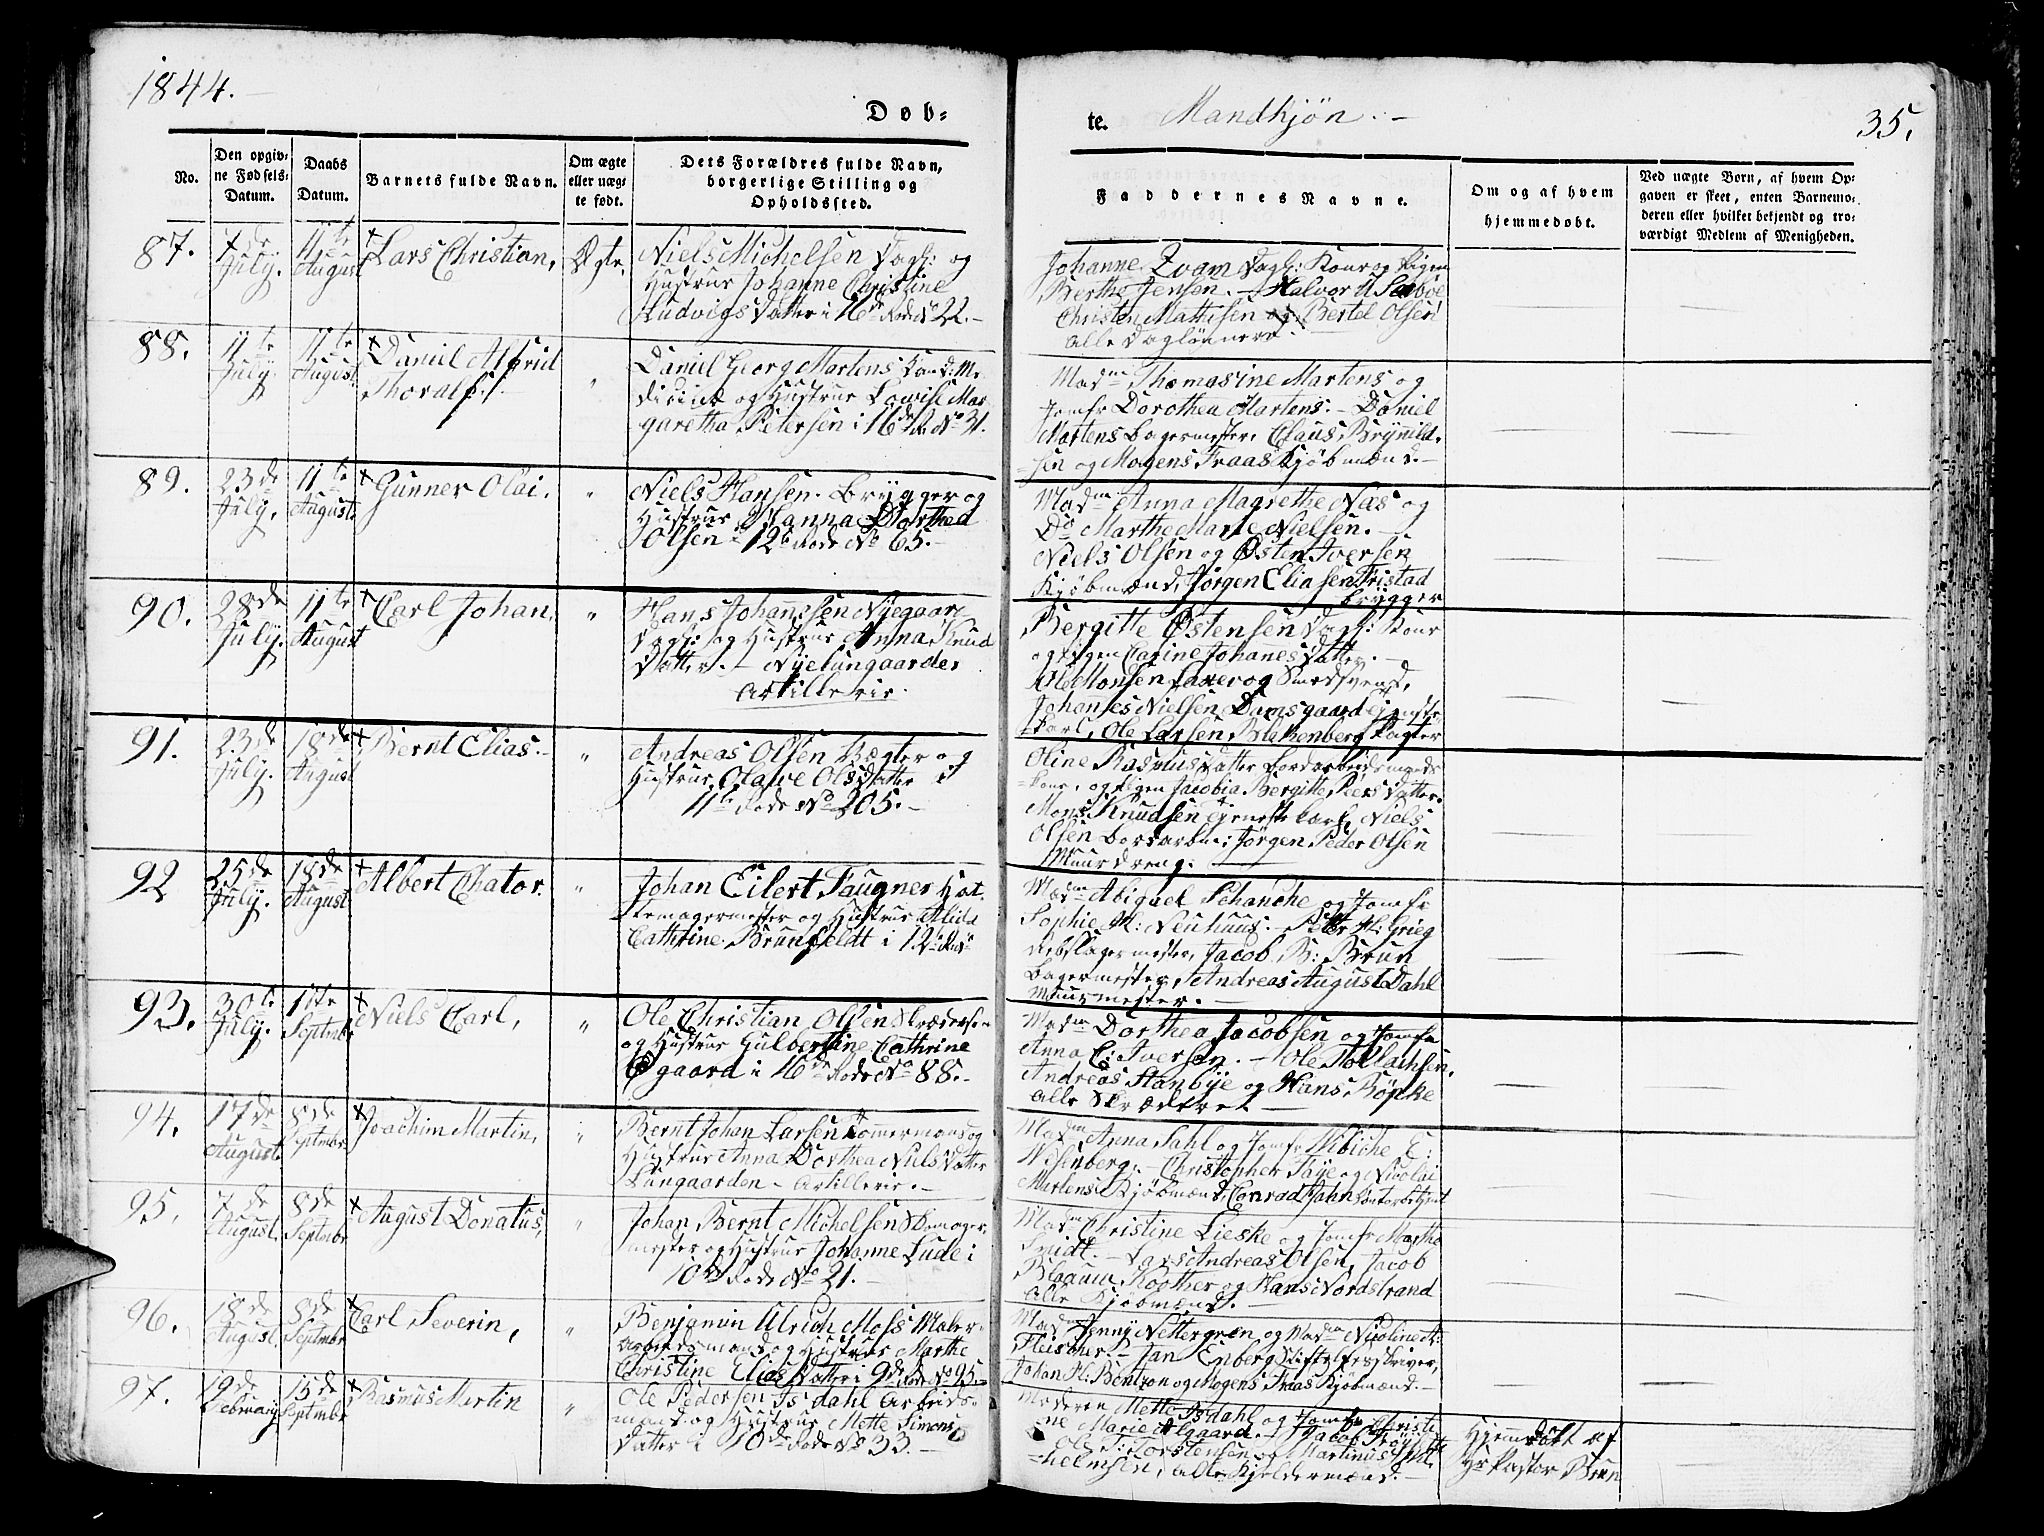 1844.
Døb-
te. Mandkjøn.
35.
No.
Den opgiv-
ne Fødsels-
Datum.
Daabs
Datum.
Barnets fulde Navn.
Om ægte
eller uæg-
te født.
Dets Forældres fulde Navn,
borgerlige Stilling og
Opholdssted.
Faddernes Navne.
Om og af hvem
hjemmedøbt.
Ved uægte Børn, af hvem Op-
gaven er skeet, enten Barnemo-
deren eller hvilket bekjendt og tro-
værdigt Medlem af Menigheden.
87.
7de
July.
11te
August
Lars Christian,
Ægte.
Niels Michelsen Dagl: og
Hustrue Johanne Christine
Ludvigs Datter i 16de Rode No 22.
Johanne Zvam Dagl: Kone og Pigen
Berthe Jensen. Halvor A Sæbøe
Christen Mathisen og Bertel Olsen
alle Dagleiere
88.
11te
July.
11te
August
Daniel Alfrid
Thoralf.
"
Daniel Georg Martens Cand: Me-
dicinæ og Hustrue Lovise Mar
garetha Petersen i 16de Rode No 31.
Madme Thomasine Martens og
Jomfr Dorothea Martens. Daniel
Martens Bagermester, Claus Brynild-
sen og Mogens Fraas Kjøbmænd.
89.
23de
July.
11te
August.
Gunner Olai.
"
Niels Hansen. Brygger og
Hustrue Hanna Dorthea
Olsen i 12te Rode No 65.
Madme Anna Magrethe Næs og
Do Marthe Marie Nielsen.
Niels Olsen og Østen Iversen
Kjøbmænd, Jørgen Eliasen Tristad
Brygger
90.
28de
July.
11te
August
Carl Johan,
"
Hans Johannesen Nyegaard
Dagl: og Hustrue Anna Knud
Datter. Nyelungaarden
Artillerie.
Bergitte Østensen Dagl: Kone
og Pigen Carine Johannes Datter.
Ole Monsen og Smedsvend,
Johannes Nielsen Damsgaard tjeneste
Karl, Ole Larsen Blekenberg Pagter
91.
23de
July.
18de
August
Bernt Elias.
"
Andreas Olsen Vægter og
Hustrue Olave Olsdatter i
11te Rode No 205.
Oline Rasmusdatter Bordarbeidsmands
Kone, og Pigen Jacobia Bergitte Peers Datter.
Mons Knudsen tjeneste karl, Niels
Olsen Bordarbm: Jørgen Peder Olsen
Muurdreng.
92
25de
July.
18de
August
Albert Chator.
"
Johan Eilert Faugner Hat-
temagermester og Hustrue Alida
Cathrine Brunfeldt i 12te Rode
Madme Abigael Schanche og Jomfr
Sophie M: Neuhuus. Peter H: Grieg
Rebslagermester, Jacob B: Brun
Bagermester, Andreas August Dahl
Muurmester.
93.
30te
July.
1ste
Septmbr
Niels Carl,
"
Ole Christian Olsen Skrædersv
og Hustrue Gulbertine Cathrine
gaard i 16de Rode No 88.
Madme Dorthea Jacobsen og Jomfr
Anna E: Iversen. Ole Tollachsen.
Andreas Stanbye og Hans Böpke
alle Skrædere
94.
17de
August.
8de
Septmbr
Joachim Martin,
"
Bernt Johan Larsen Tømmermand og
Hustrue Anna Dorthea Niels Datter
Lungaarden Artillerie.
Madme Anna Dahl og Jomfr Wibiche E:
Wesenberg. Christopher Faye og Nicolai
Martens Kjøbmænd, Conrad Jahn Contorbetjent
95.
7de
August.
8de
Septmbr
August Donatus,
"
Johan Bernt Michelsen Skomager-
mester og Hustrue Johanne Lude i
10de Rode No 21.
Madme Christine Lieske og Jomfr Marthe
Smidt. Lars Andreas Olsen, Jacob
Blaauw Koother og Hans Nordstrand
alle Kjøbmænd.
96.
18de
August.
8de
Septmbr
Carl Severin,
"
Benjamin Ulrich Moss Maler-
arbeidsmand og Hustrue Marthe
Christine Elias Datter i 9de Rode No 95.
Madme Jenny Nettergren og Madme Nicoline A:
Fleischer. Jan Enberg Stiftelsesskriver,
Johan H: Bentzon og Mogens Fraas Kjøbmænd.
97.
19de
February
15de
Septmbr
Rasmus Martin
"
Ole Pedersen Isdahl Arbeids-
mand og Hustrue Mette Simons
Datter i 10de Rode No 33.
Moderen Mette Isdahl og Jomfr Christi
ne Marie Algaard. Jacob
Ole T: Torstensen og Martinus
helmsen, alle Kjeldermænd.
Hjemdøbt af
Hr Pastor Brun